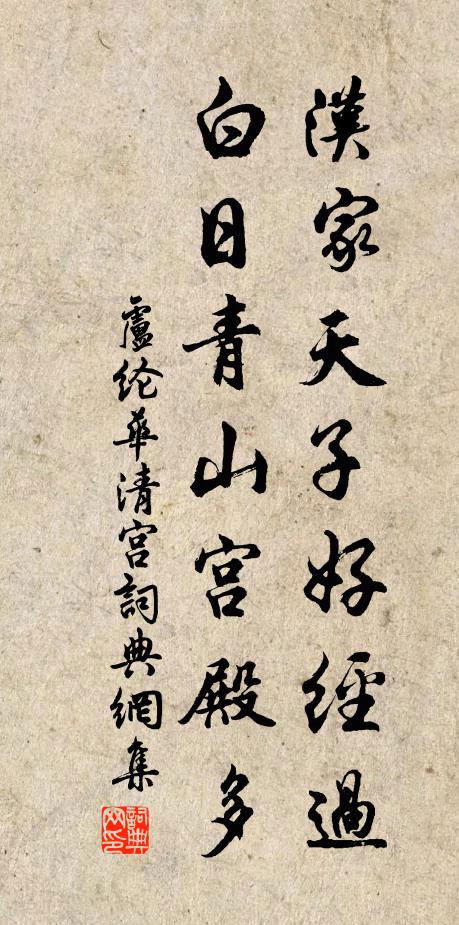 漢家天子好經過
白日青山宮殿多
盧纶華清宮詞典網集
詞典
网印